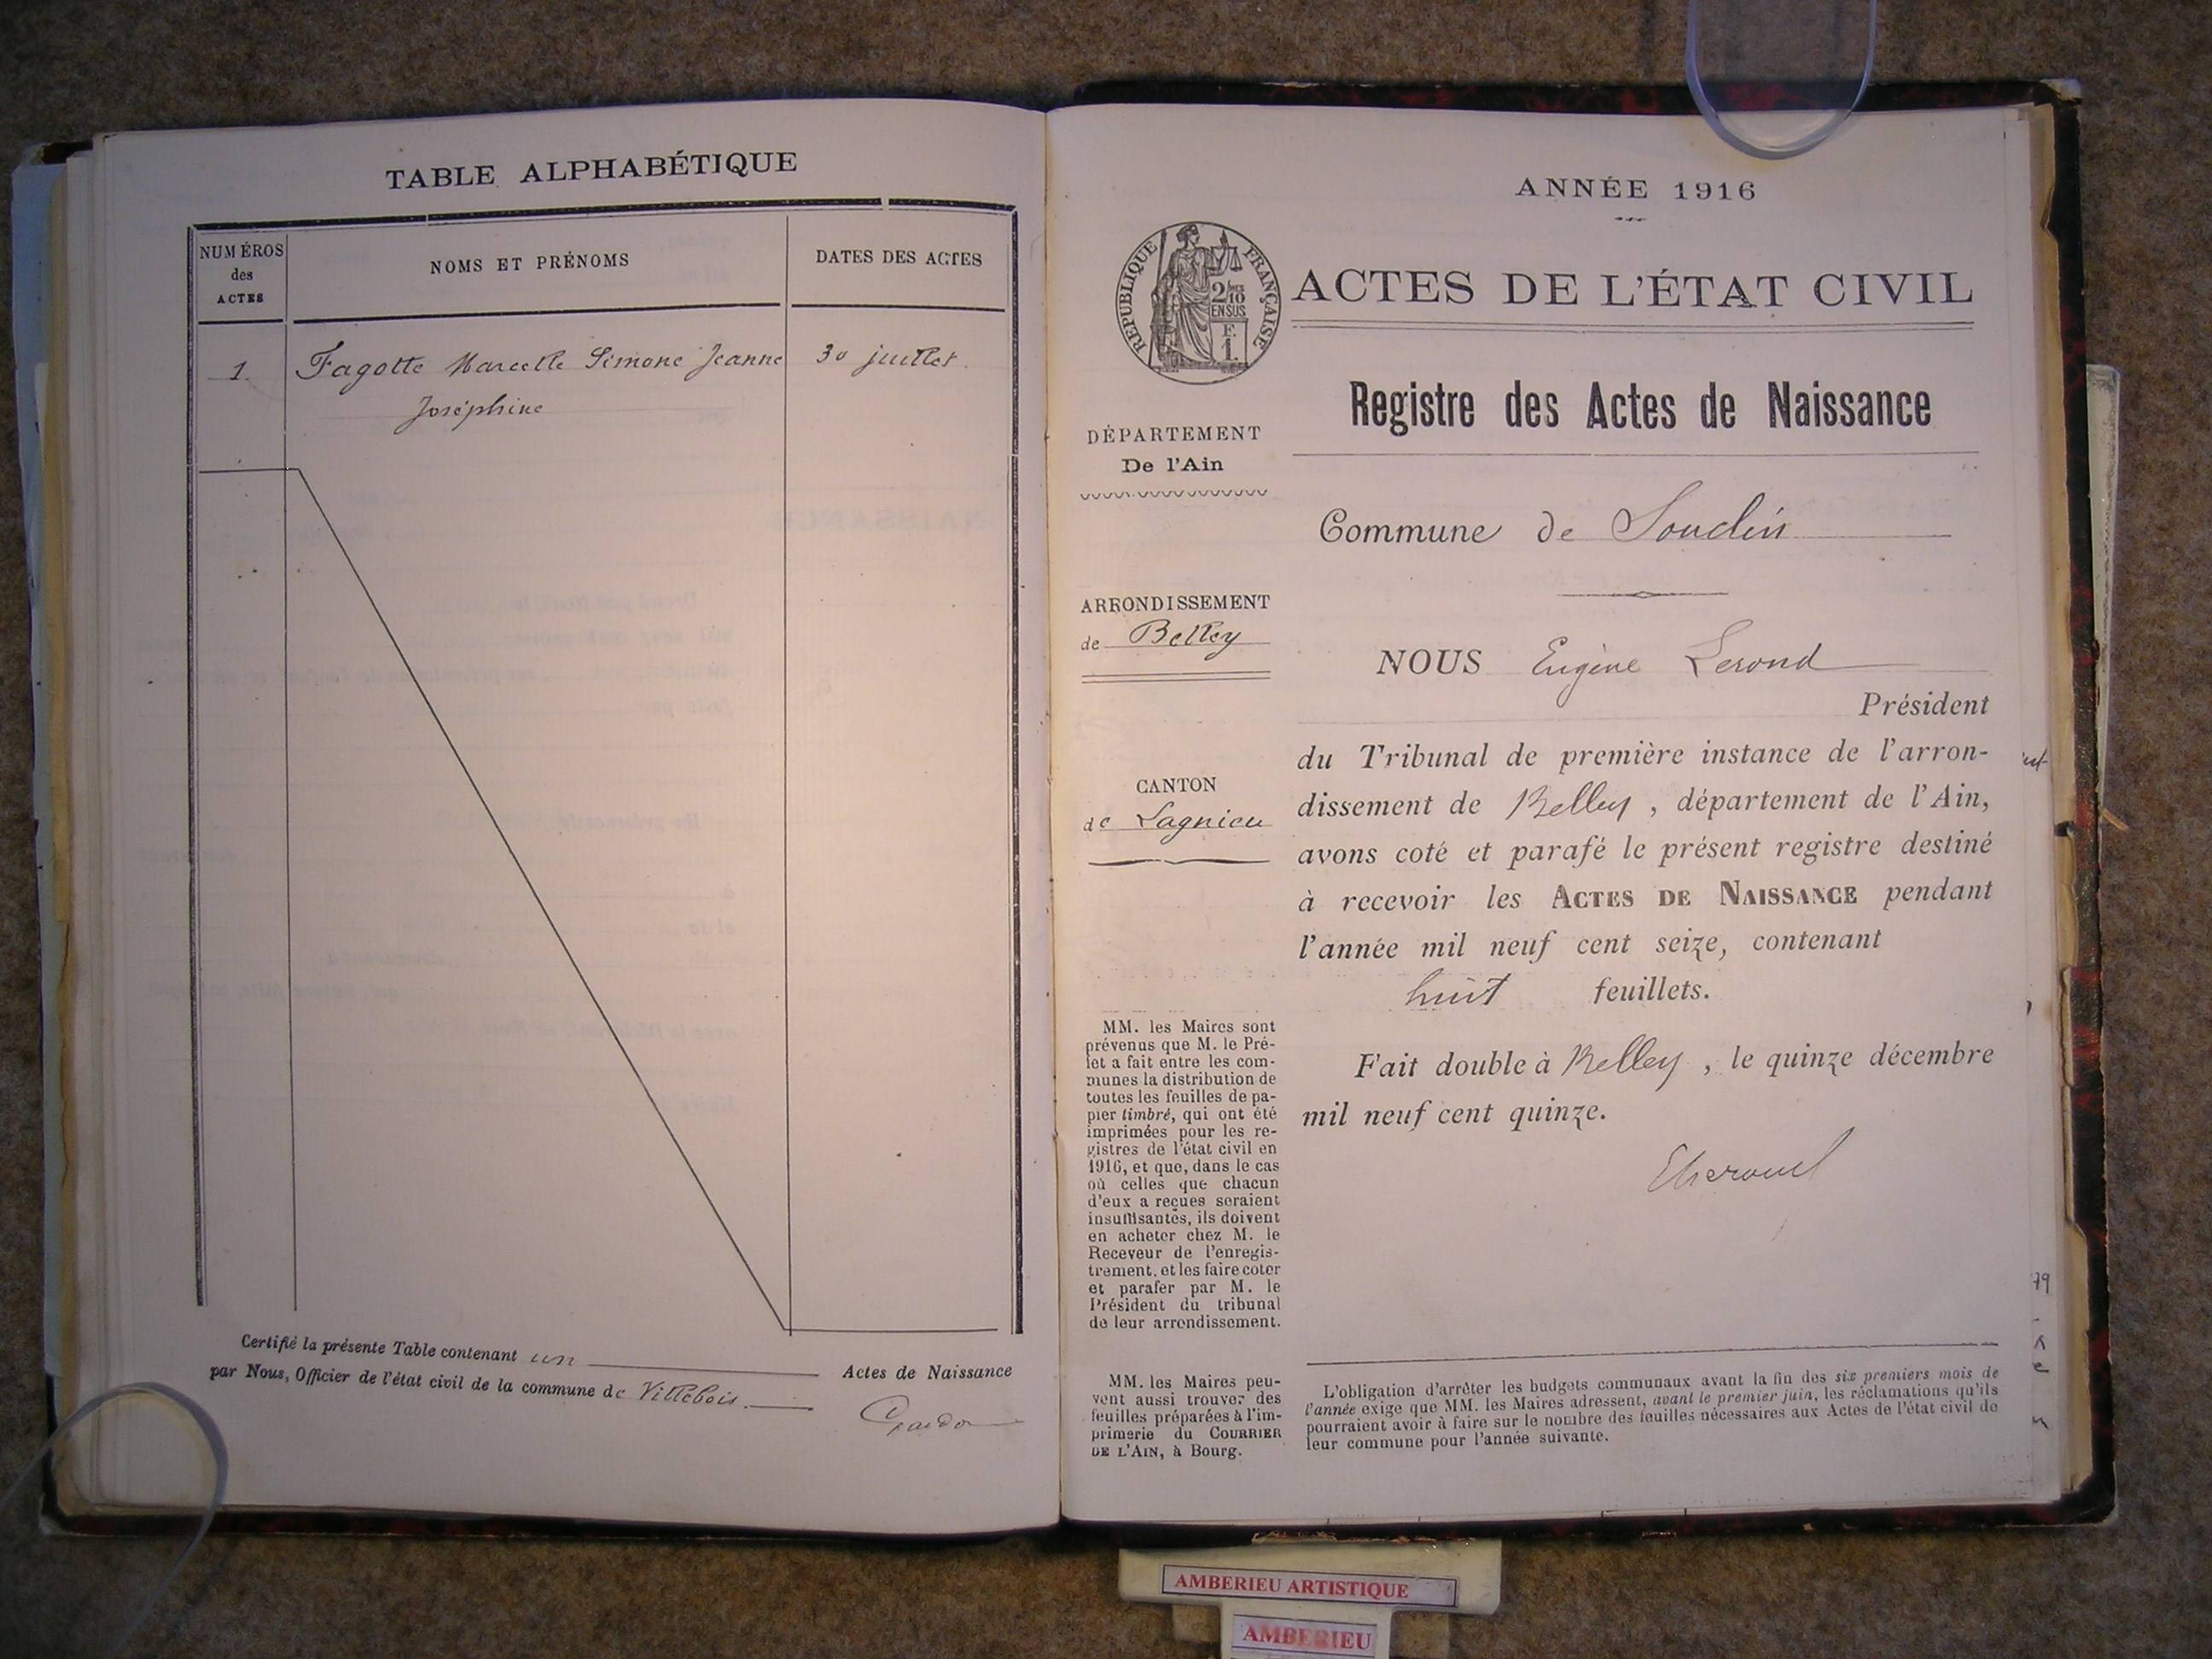 TABLE ALPHABÉTIQUE
NUMÉROS
des
ACTES
NOMS ET PRÉNOMS
DATES DES ACTES
1
Fagotte Marcelle Simone Jeanne
30 juillet.
Joséphine
Certifié la présente Table contenant un
Actes de Naissance
par Nous, Officier de l'état civil de la commune de Villebois
ANNÉE 1916
RÉPUBLIQUE FRANÇAISE
2/10
EN SUS
F.
1.
ACTES DE L'ÉTAT CIVIL
Registre des Actes de Naissance
DÉPARTEMENT
De l'Ain
Commune de Souclin
ARRONDISSEMENT
de Belley
CANTON
de Lagnieu
NOUS Eugène Lerond
Président
du Tribunal de première instance de l'arron-
dissement de Belley, département de l'Ain,
avons coté et parafé le présent registre destiné
à recevoir les ACTES DE NAISSANCE pendant
l'année mil neuf cent seize, contenant
huit feuillets.
Fait double à Belley, le quinze décembre
mil neuf cent quinze.
MM. les Maires sont
prévenus que M. le Pré-
fet a fait entre les com-
munes la distribution de
toutes les feuilles de pa-
pier timbré, qui ont été
imprimées pour les re-
gistres de l'état civil en
1916, et que, dans le cas
où celles que chacun
d'eux a reçues seraient
insuffisantes, ils doivent
en acheter chez M. le
Receveur de l'enregis-
trement, et les faire coter
et parafer par M. le
Président du tribunal
de leur arrondissement.
MM. les Maires peu-
vent aussi trouver des
feuilles préparées à l'im-
primerie du COURRIER
DE L'AIN, à Bourg.
L'obligation d'arrêter les budgets communaux avant la fin des six premiers mois de
l'année exige que MM. les Maires adressent, avant le premier juin, les réclamations qu'ils
pourraient avoir à faire sur le nombre des feuilles nécessaires aux Actes de l'état civil de
leur commune pour l'année suivante.
AMBERIEU ARTISTIQUE
AMBERIEU